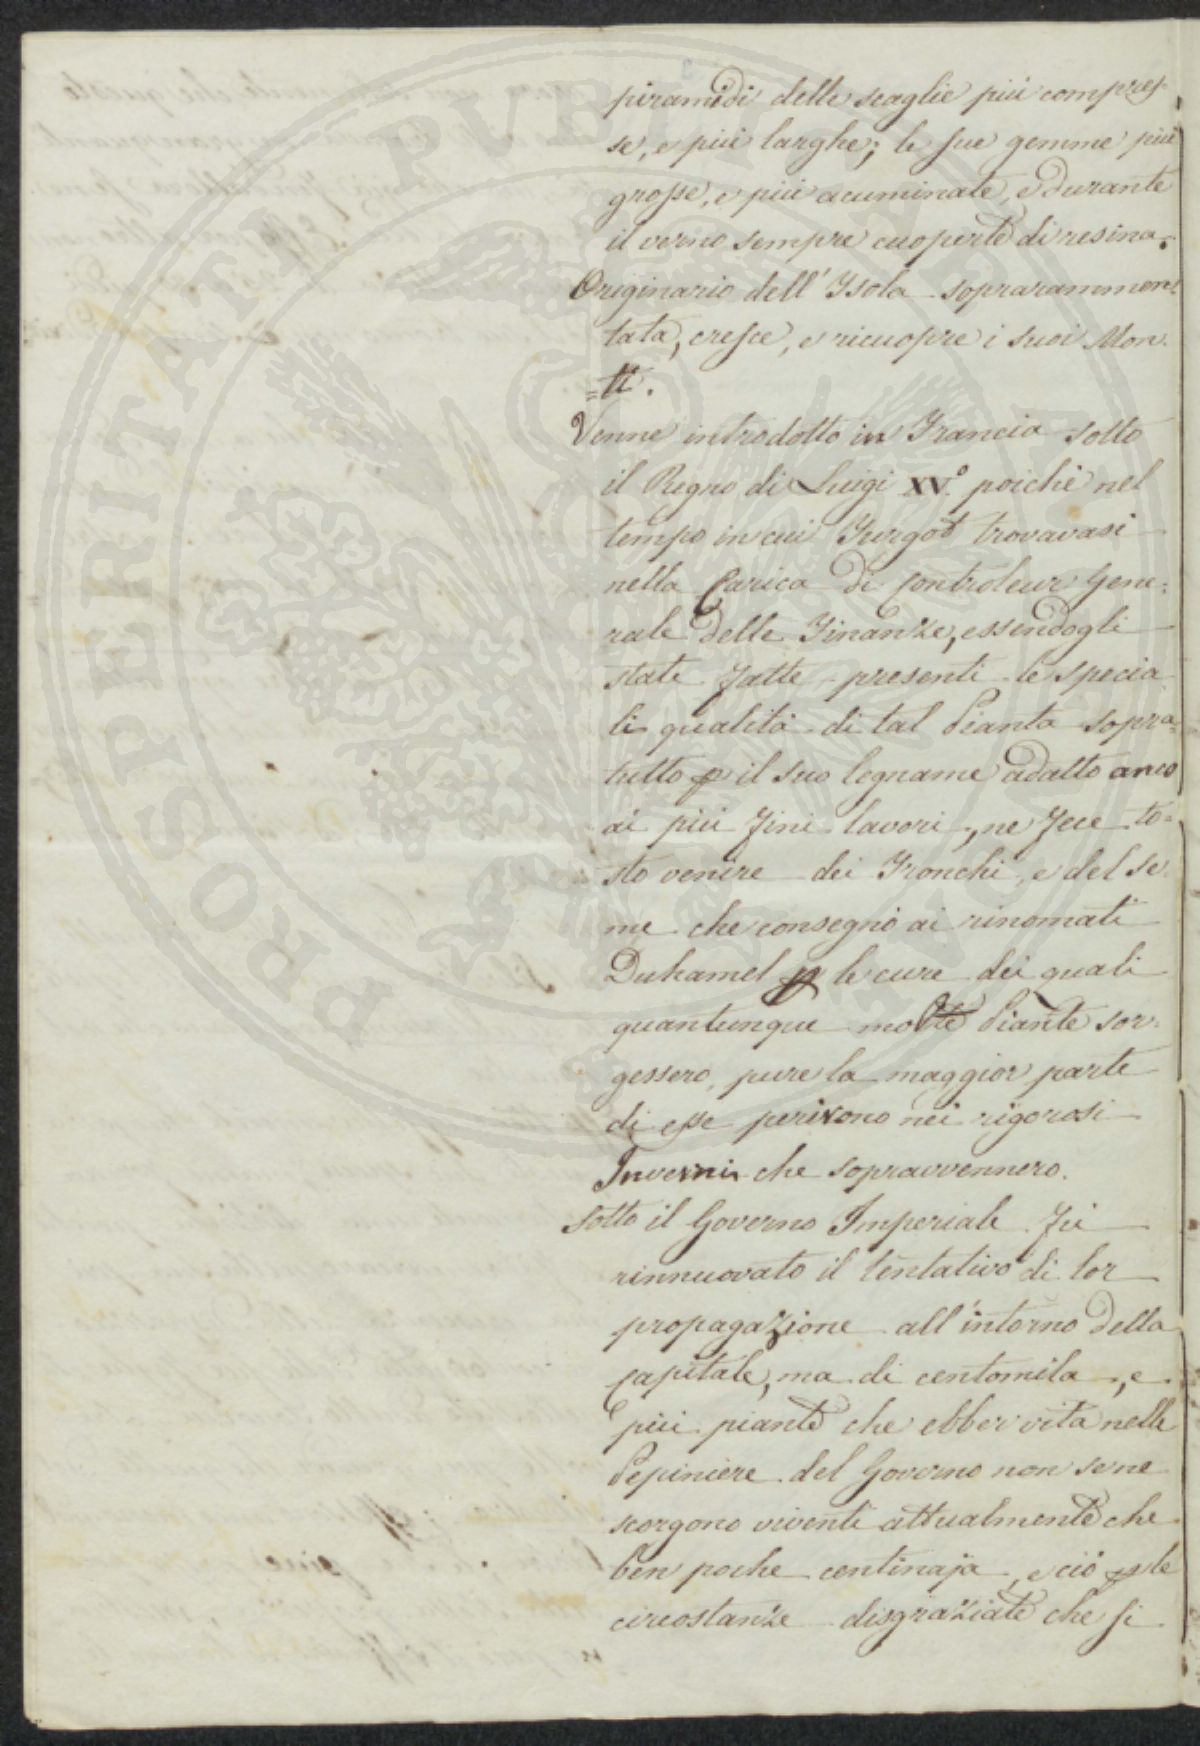 piramidi delle scaglie più compres-
se, e più larghe; le sue gemme più
grosse, e più acuminate, e durante
il verno sempre cuoperte di resina.
Originario dell'Isola soprarammen=
tata, cresce, e ricuopre i suoi Mon-
=ti.
Venne introdotto in Francia sotto
il Regno di Luigi XV.° poichè nel
tempo in cui Turgot trovavasi
nella Carica di Controleur Gene=
rale delle Finanze, essendogli
state fatte presenti le specia
li qualità di tal Pianta sopra=
tutto p il suo legname adatto anco
ai più fini lavori, ne fece to=
sto venire dei Tronchi, e del se=
me che consegnò ai rinomati
Duhamel p le cure dei quali
quantunque molte Piante sor=
gessero, pure la maggior parte
di esse perirono nei rigorosi
Inverni che sopravvennero.
Sotto il Governo Imperiale fù
rinnuovato il tentativo di lor
propagazione all'intorno della
Capitale, ma di centomila, e
più piante che ebber vita nelle
Pepiniere del Governo non se ne
scorgono viventi attualmente che
ben poche centinaja, e ciò p le
circostanze disgraziate che si
PROSPERITATI PUBLICAE